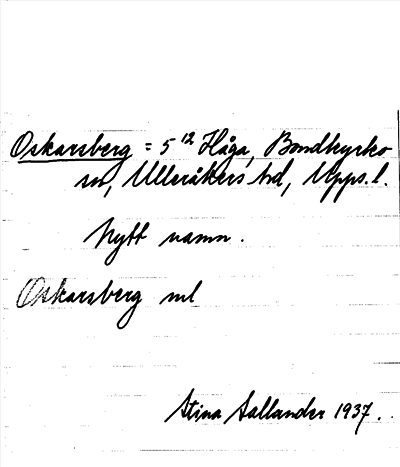 Oskarsberg = 5¹² Håga, Bondkyrko
sn, Ulleråkers hd, Upps. l.
Nytt namn.
Oskarsberg ml
Stina Sallander 1937.